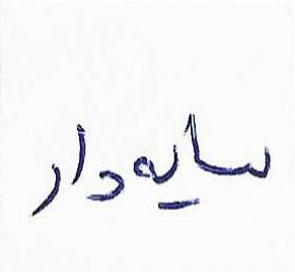 سایه‌دار